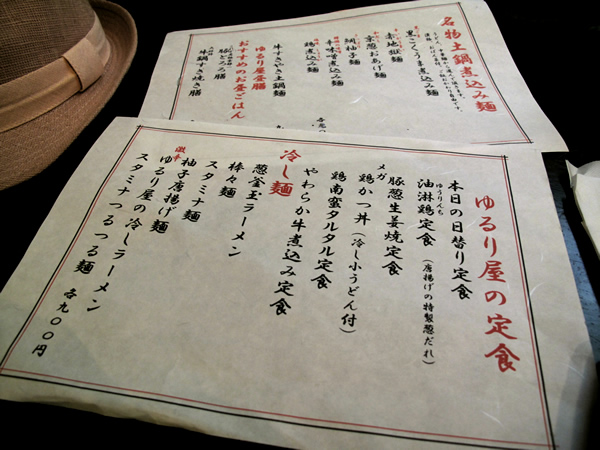 名物土鍋煮込み麺
黒こくうま煮込み麺
赤地獄麺
京葱おあげ麺
鯛柚子麺
辛味噌煮込み麺
鶏煮込み麺
牛すきやき土鍋麺
ゆるり屋昼膳
おすすめのお昼ごはん
豚とろろ膳
牛鍋すき焼き膳
ゆるり屋の定食
本日の日替り定食
ゆうりんち
油淋鶏定食(唐揚げの特製葱だれ)
豚葱生姜焼定食
メガ
鶏かつ丼(冷し小うどん付)
鶏南蛮タルタル定食
やわらか牛煮込み定食
冷し麺
葱釜玉ラーメン
棒々麺
スタミナ麺
柚子唐揚げ麺
激辛
ゆるり屋の冷しラーメン
スタミナつるつる麺 各九〇〇円